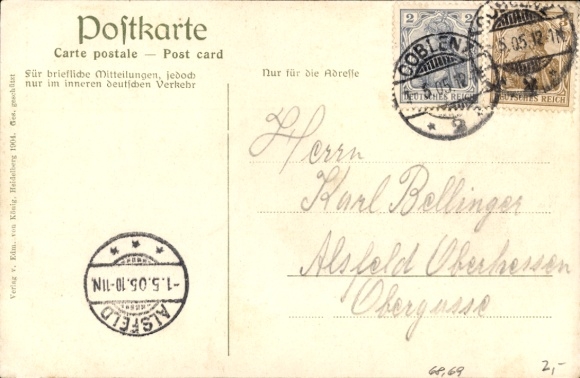 Postkarte
Carte postale — Post card
Für briefliche Mitteilungen, jedoch
nur im inneren deutschen Verkehr
Nur für die Adresse
2 2
DEUTSCHES REICH
DEUTSCHES REICH
COBLENZ
5.05.12
2
COBLENZ
5.05.12-1N
Herrn
Karl Bellinger
Alsfeld Oberhessen
Obergasse
ALSFELD
-1.5.05.10-11N.
Verlag v. Edm. von König, Heidelberg 1904. Ges. geschützt
68,69
2,-